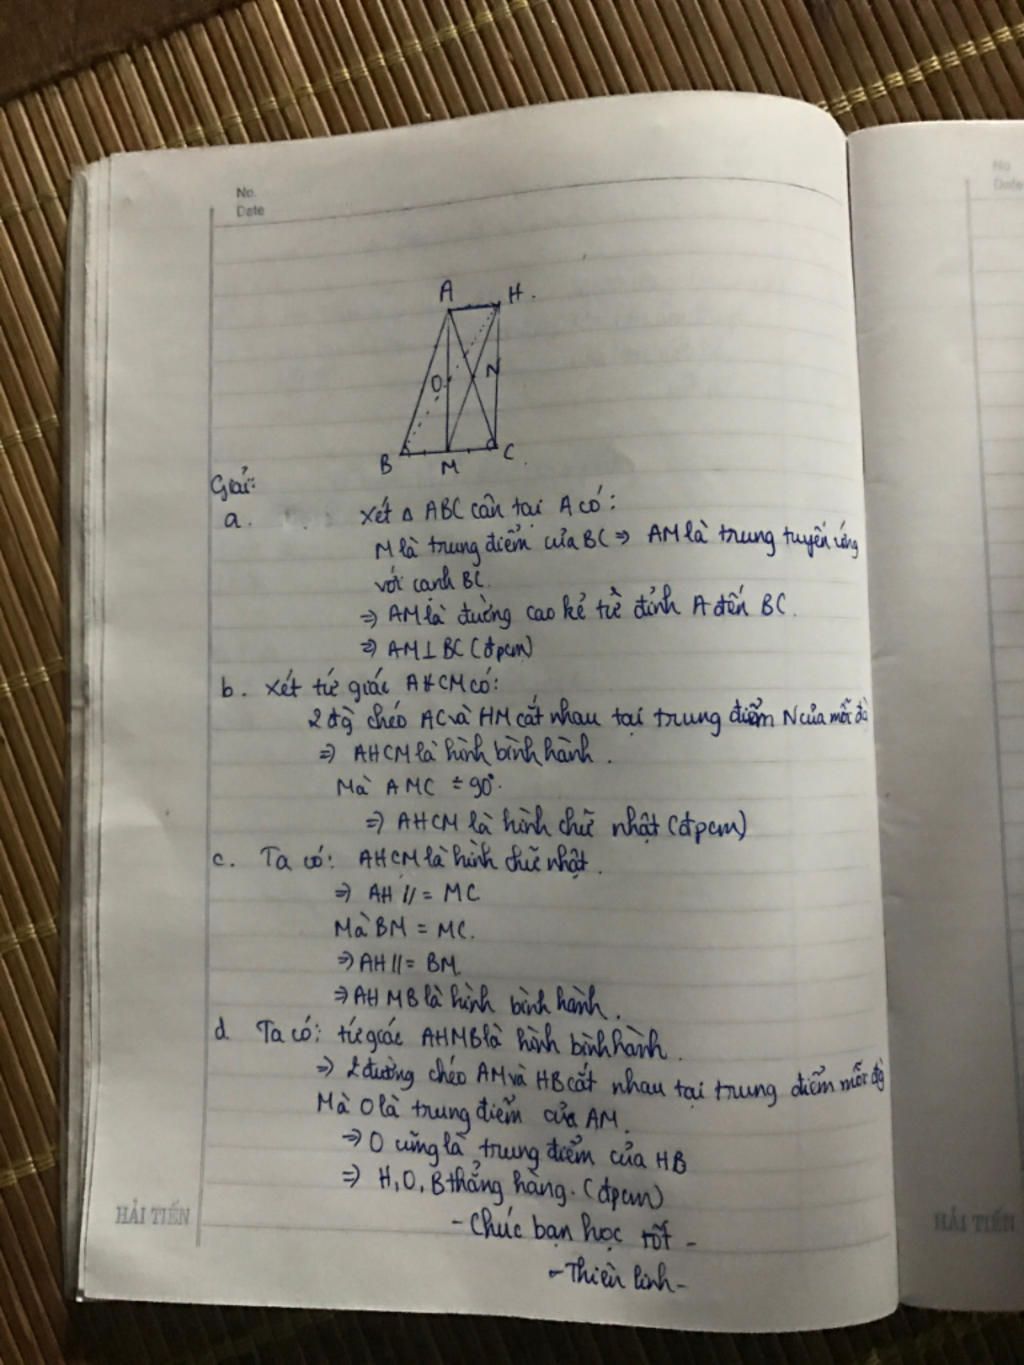 No.
Date
No
Date
A H.
O N
B M C
Giải:
a. Xét △ ABC cân tại A có:
M là trung điểm của BC ⇒ AM là trung tuyến ứng
với cạnh BC.
⇒ AM là đường cao kẻ từ đỉnh A đến BC.
⇒ AM⊥BC (đpcm)
b. Xét tứ giác AHCM có:
2 đg chéo AC và HM cắt nhau tại trung điểm N của mỗi đg
⇒ AHCM là hình bình hành.
Mà AMC = 90°.
⇒ AHCM là hình chữ nhật (đpcm)
c. Ta có: AHCM là hình chữ nhật.
⇒ AH // = MC
Mà BM = MC.
⇒ AH // = BM.
⇒ AHMB là hình bình hành.
d. Ta có: tứ giác AHMB là hình bình hành.
⇒ 2 đường chéo AM và HB cắt nhau tại trung điểm mỗi đg
Mà O là trung điểm của AM.
⇒ O cũng là trung điểm của HB
⇒ H, O, B thẳng hàng. (đpcm)
- Chúc bạn học tốt -
- Thiên linh -
HẢI TIẾN
HẢI TIẾN